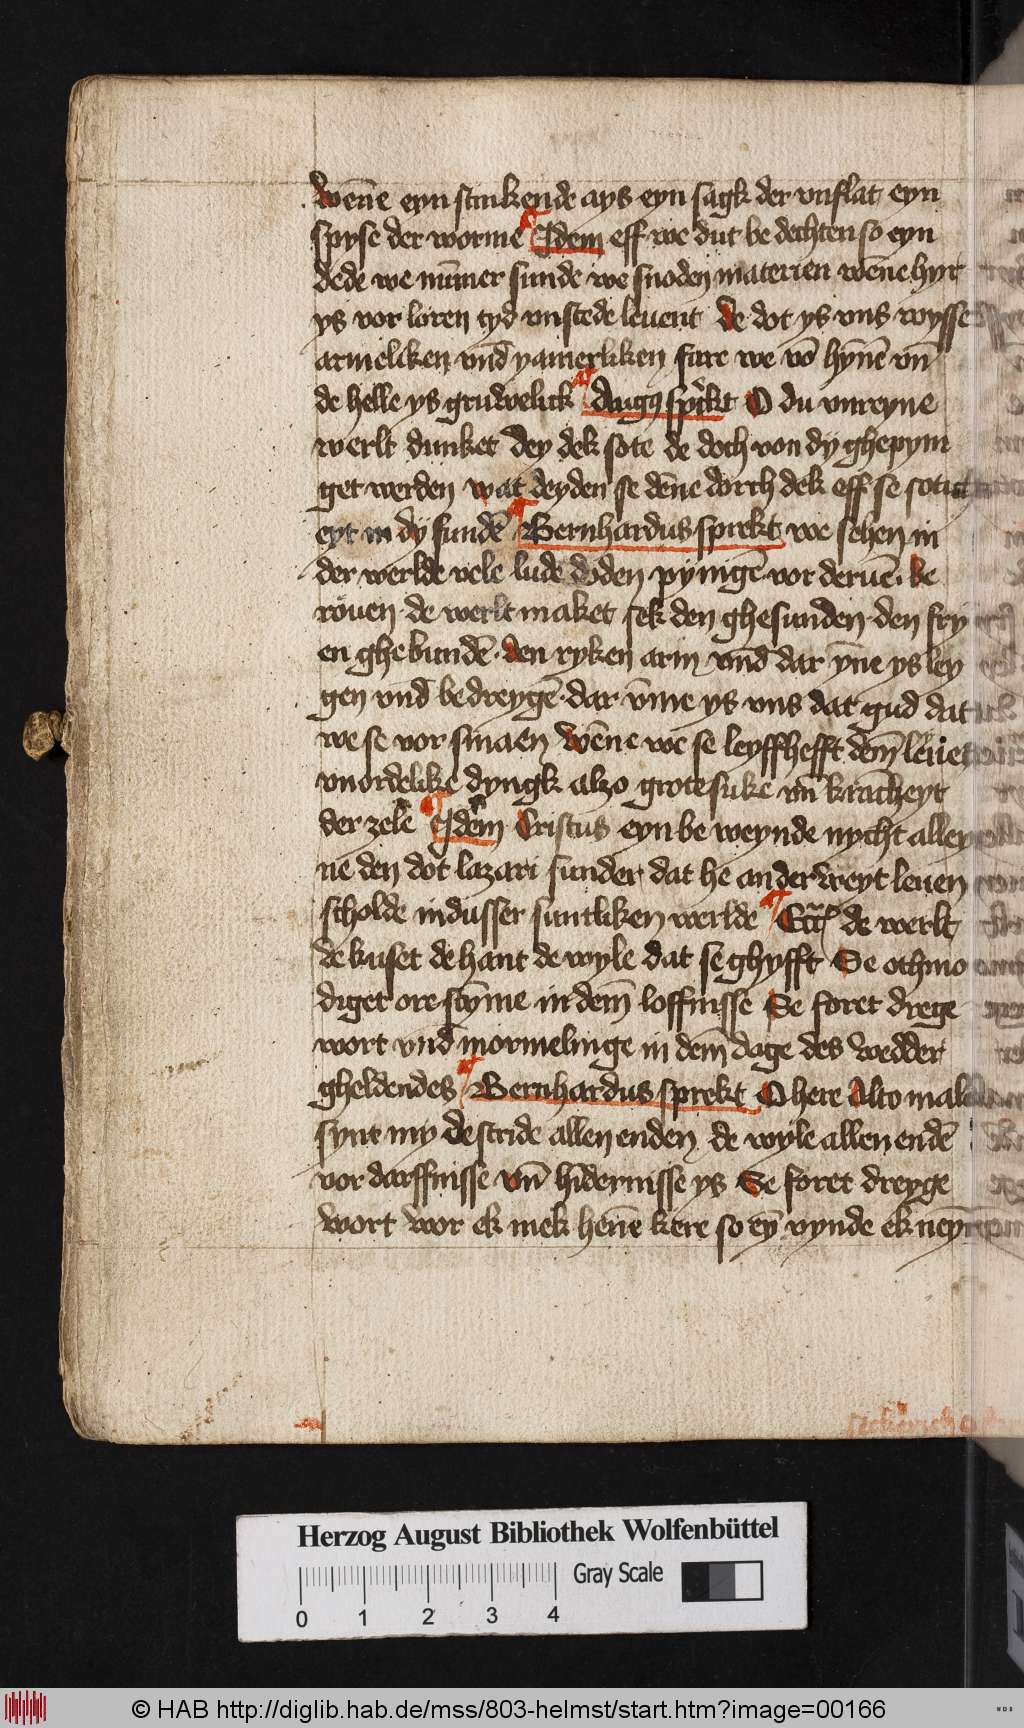 wēne eyn stinkende ays eyn sagk der vnflat eyn
spyse der worme Idem eff we dut be dechten so eyn
dede we nūmer sunde we snoden materien wēne hyr
ys vor loren tyd vnstede leuent de dot ys vns wysse
armeliken vnd yamerliken fare we vō hȳnē vn̄
de helle ys gruwelick Augꝰ sprikt O du vnreyne
werlt dunket dey dek sote de doch von dy ghepyni
get werden wat deyden se dēne dorch dek eff se
eyt in dy fundē Bernhardus sprekt we sehen in
der werlde vele lude doden pyingē vor deruē be
rouen de werlt maket sek den ghesunden den fry
en ghe bundē den ryken arm vnd dar ȳne ys ley
gen vnd bedreygē dar v̄me ys vns dat gud dat
we se vor smaen wēne we se leyffhefft dem̄
vnordelike dyngk alzo grote suke vn̄ krācheyt
der zele Idem Cristus eyn be weynde nycht alley
ne den dot lazari sunder dat he anderweyt leuen
scholde in dusser suntliken werlde de werlt
de kuset de hant de wyle dat se ghyfft Se othmo
diget ore stȳme in dem̄ loffnisse Se foret drege
wort vnd mormelinge in dem̄ dage des wedder
gheldendes Bernhardus sprekt O here Alto male
synt my de stride allen enden de wyle allen endē
vor darffnisse vn̄ hīdernisse ys Se foret dreyge
wort wor ek mek henē kere so eȳ vynde ek
Herzog August Bibliothek Wolfenbüttel
Gray Scale
0 1 2 3 4
© HAB http://diglib.hab.de/mss/803-helmst/start.htm?image=00166